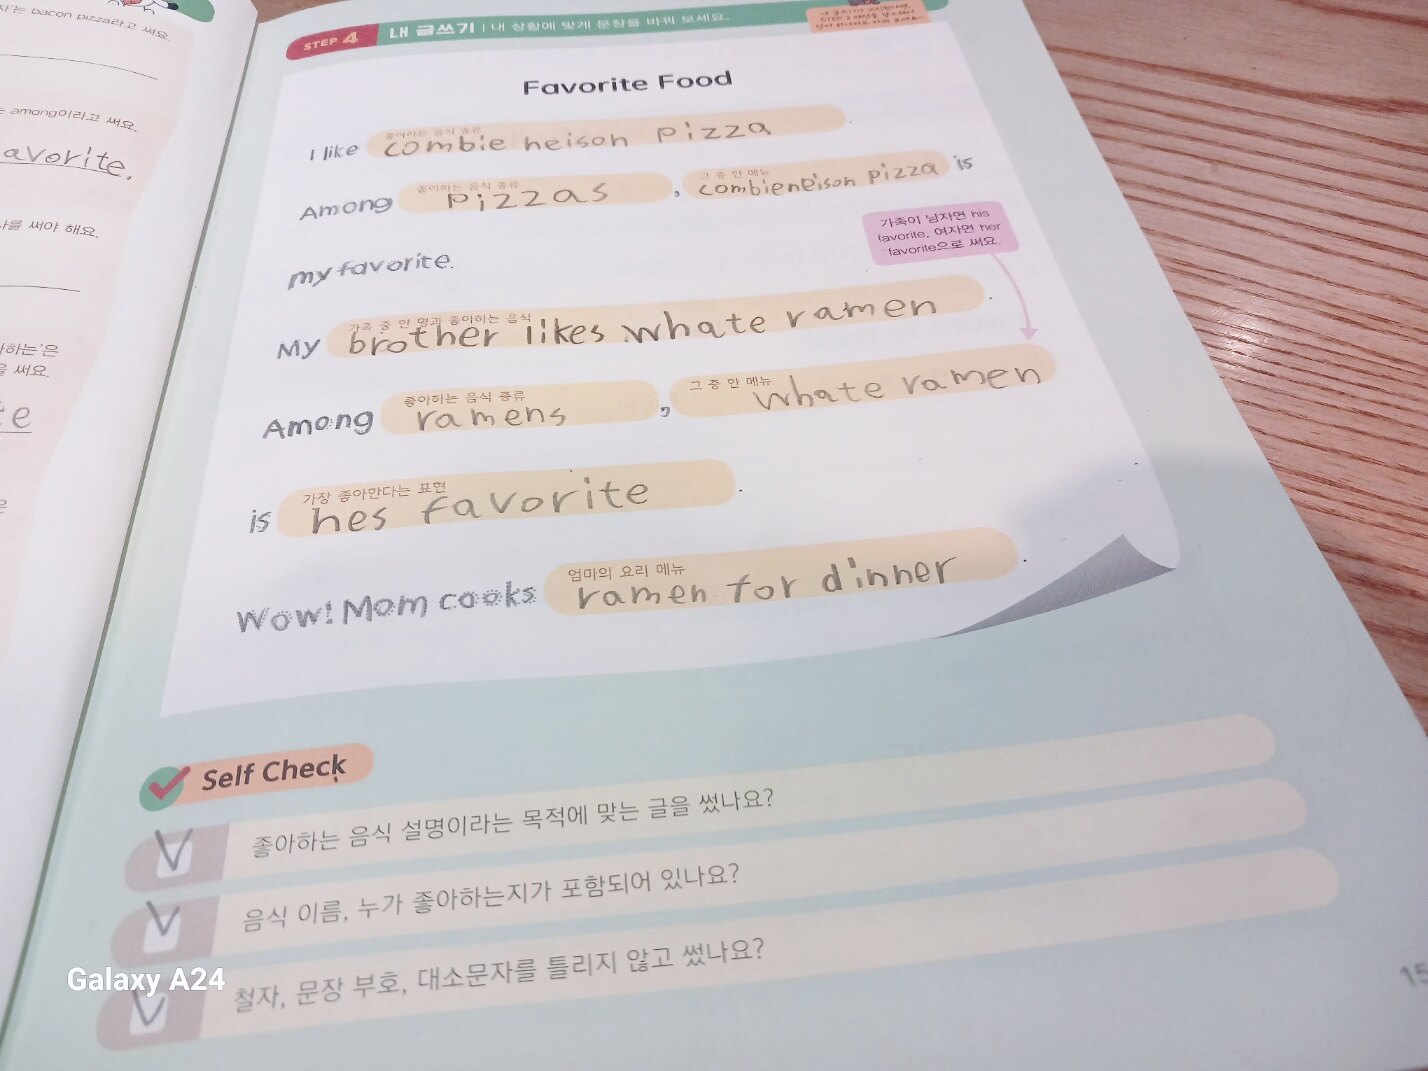 는 bacon pizza라고 써요.
among이라고 써요.
avorite.
를 써야 해요.
하는'은
을 써요.
te
STEP 4 내 글쓰기 | 내 상황에 맞게 문장을 바꿔 보세요.
Favorite Food
좋아하는 음식 종류
I like combie neison pizza
좋아하는 음식 종류 그 중 한 메뉴
Among pizzas, combieneison pizza is
가족이 남자면 his
favorite, 여자면 her
favorite으로 써요.
my favorite.
가족 중 한 명과 좋아하는 음식
My brother likes whate ramen.
좋아하는 음식 종류 그 중 한 메뉴
Among ramens, whate ramen
가장 좋아한다는 표현
is hes favorite.
엄마의 요리 메뉴
Wow! Mom cooks ramen for dinner.
Self Check
V 좋아하는 음식 설명이라는 목적에 맞는 글을 썼나요?
V 음식 이름, 누가 좋아하는지가 포함되어 있나요?
V 철자, 문장 부호, 대소문자를 틀리지 않고 썼나요?
Galaxy A24